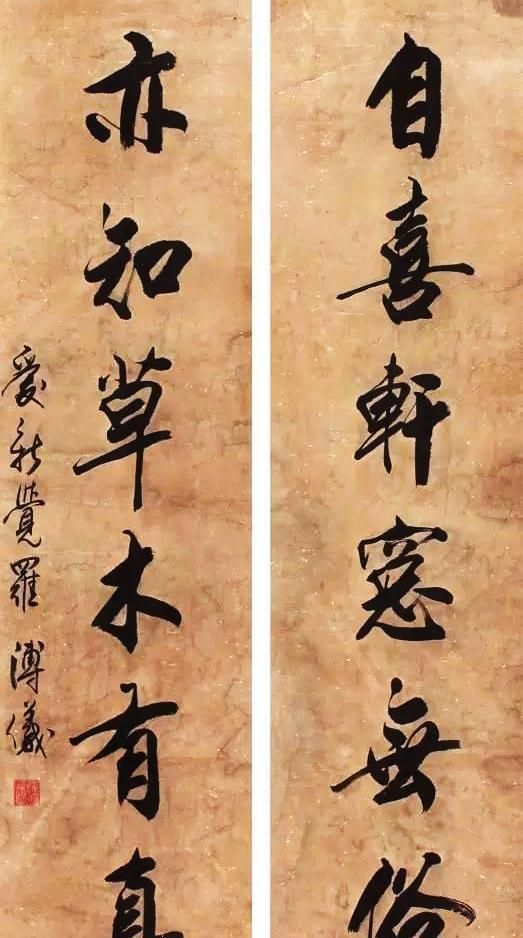 自喜軒窓無俗
亦知草木有真
愛新覺羅溥儀